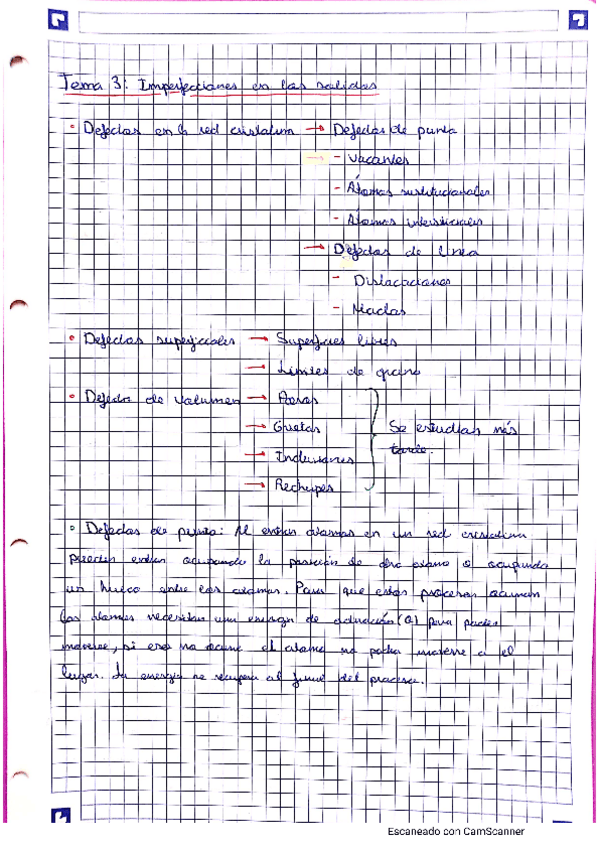 Tema 3: Imperfecciones en los solidos
• Defectos en la red cristalina → Defectos de punta
→ - Vacantes
- Átomos sustitucionales
- Atomos intersticiales
→ Defectos de linea
- Dislocaciones
- Maclas
• Defectos superficiales → Superficies libres
→ Limites de grano
• Defectos de volumen → Poros
→ Grietas
Se estudian más
tarde.
→ Inclusiones
→ Rechupes
• Defectos de punto: Al entrar atomos en un red cristalina
pueden entrar ocupando la posicion de otro atomo o ocupando
un hueco entre los atomos. Para que estos procesos ocurran
los atomos necesitan una energia de activación (Q) para poder
moverse, si eso no ocurre el atomo no podra moverse a el
lugar. La energia se recupera al final del proceso.
Escaneado con CamScanner